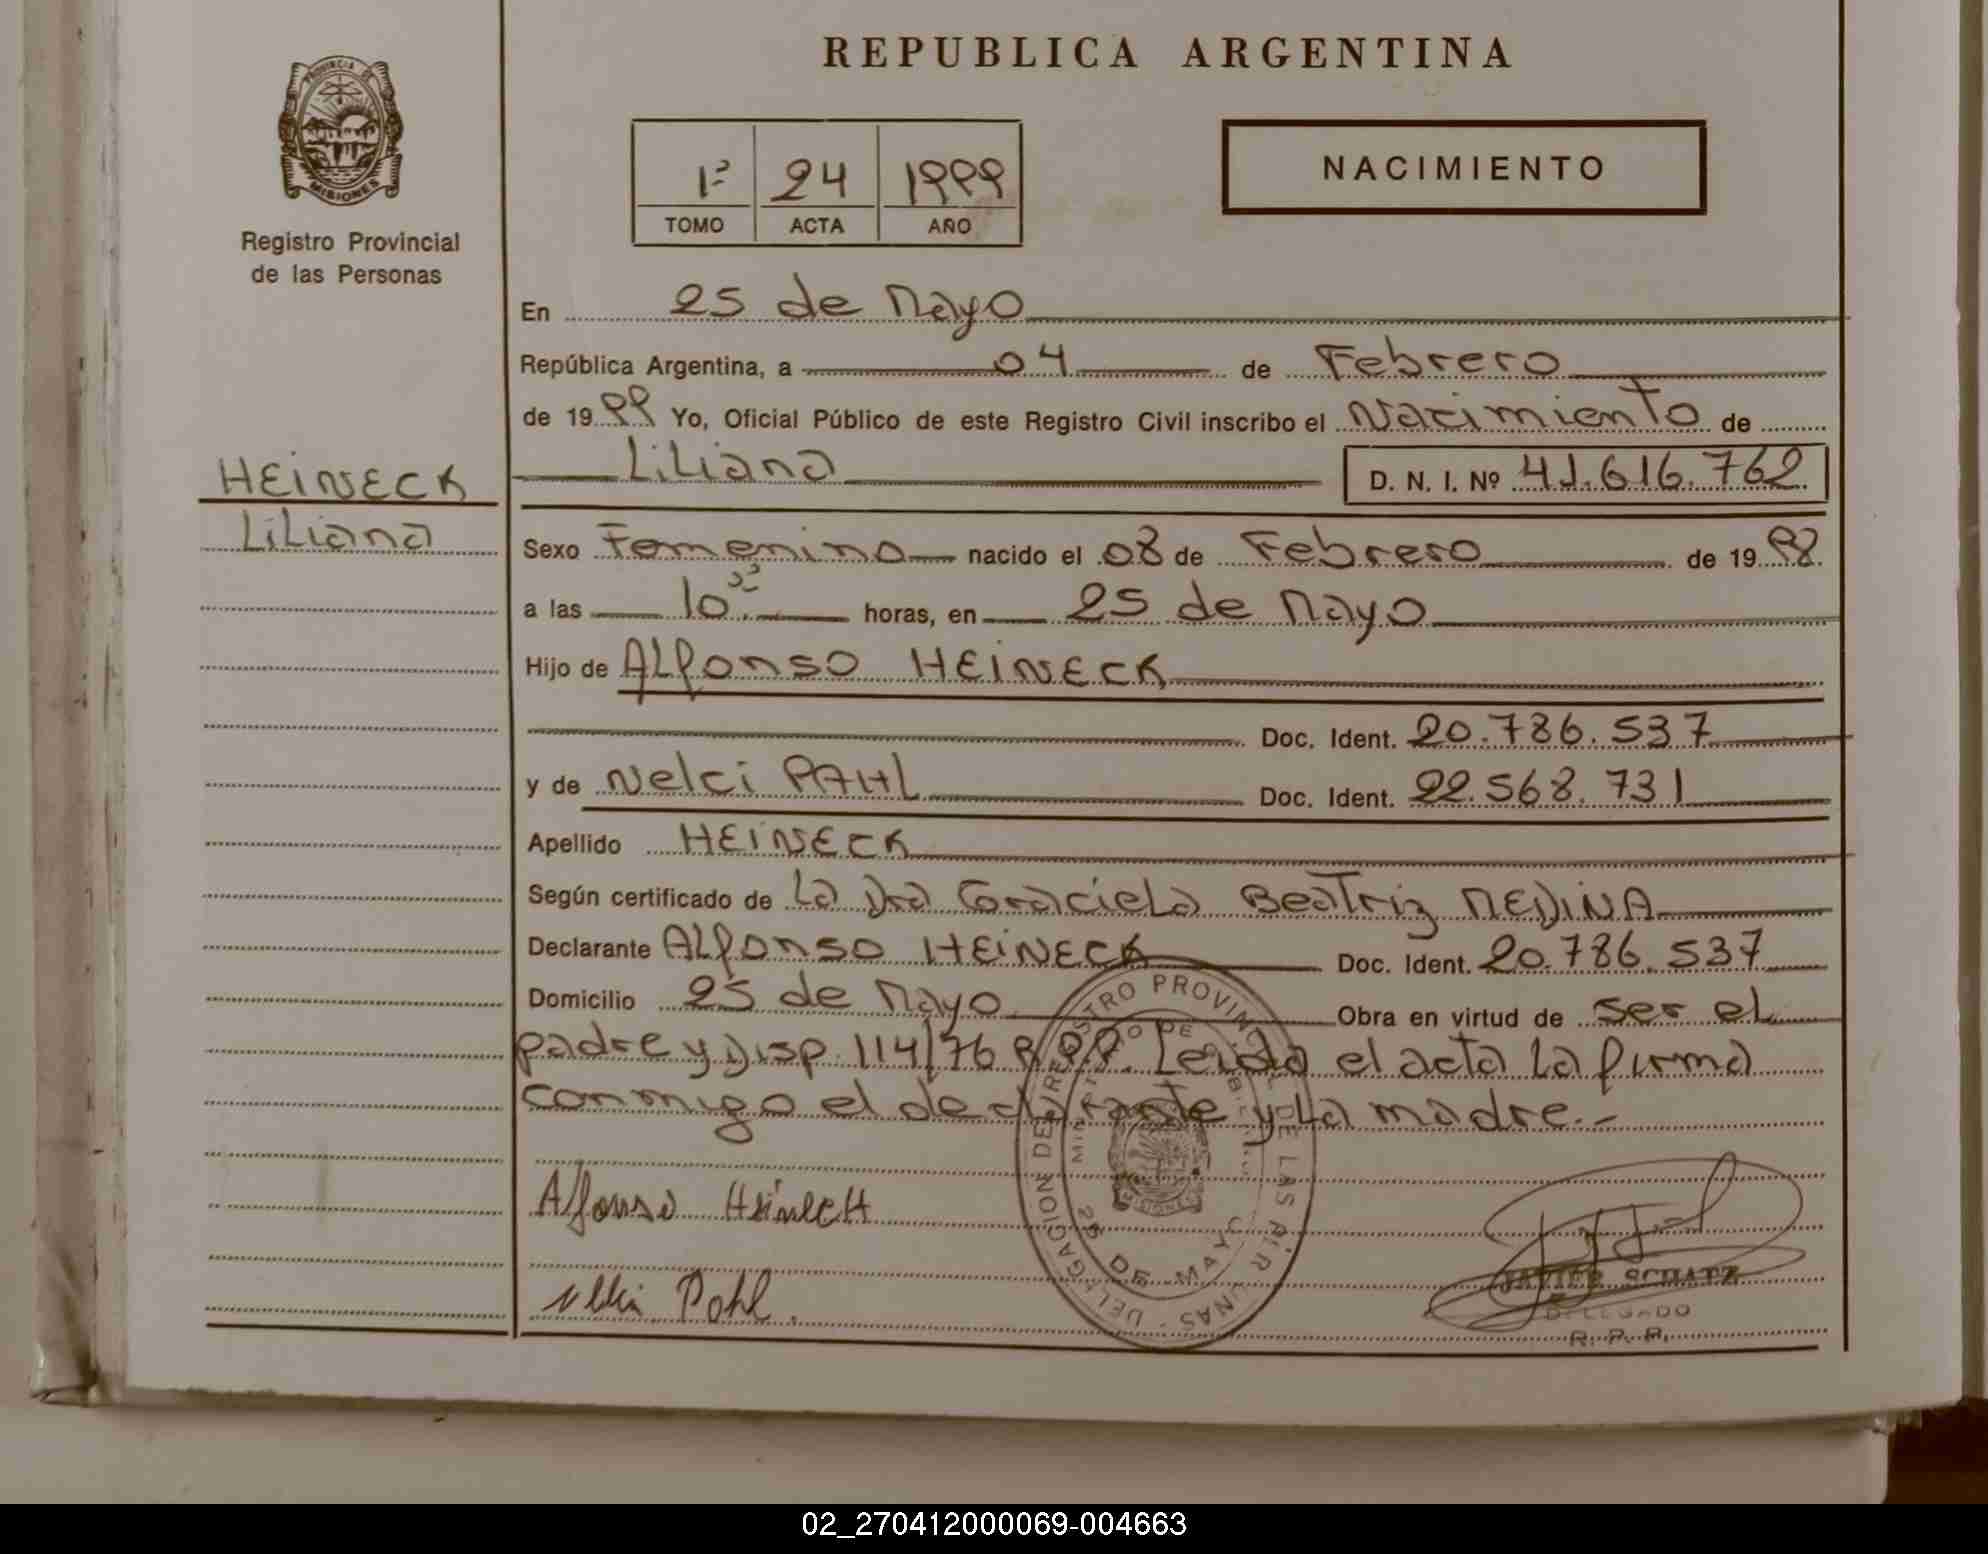 REPUBLICA ARGENTINA
PROVINCIA DE
MISIONES
Registro Provincial
de las Personas
1º 24 1999
TOMO ACTA AÑO
NACIMIENTO
En 25 de Mayo
República Argentina, a 04 de Febrero
de 1999 Yo, Oficial Público de este Registro Civil inscribo el Nacimiento de
Liliana D. N. I. Nº 41.616.762
HEINECK
Liliana
Sexo Femenino nacido el 08 de Febrero de 1998
a las 10 horas, en 25 de Mayo
Hijo de Alfonso HEINECK
Doc. Ident. 20.786.537
y de Nelci PAHL Doc. Ident. 22.568.731
Apellido HEINECK
Según certificado de La Dra Graciela Beatriz MEDINA
Declarante Alfonso HEINECK Doc. Ident. 20.786.537
Domicilio 25 de Mayo Obra en virtud de ser el
padre y Disp. 114/76 R.P.P. Leida el acta la firma
conmigo el declarante y la madre.-
DELEGACION DEL REGISTRO PROVINCIAL DE LAS PERSONAS
25 DE MAYO
MISIONES
Alfonso Heineck
Pohl.
JAVIER SCHATZ
DELEGADO
R. P. P.
02_270412000069-004663